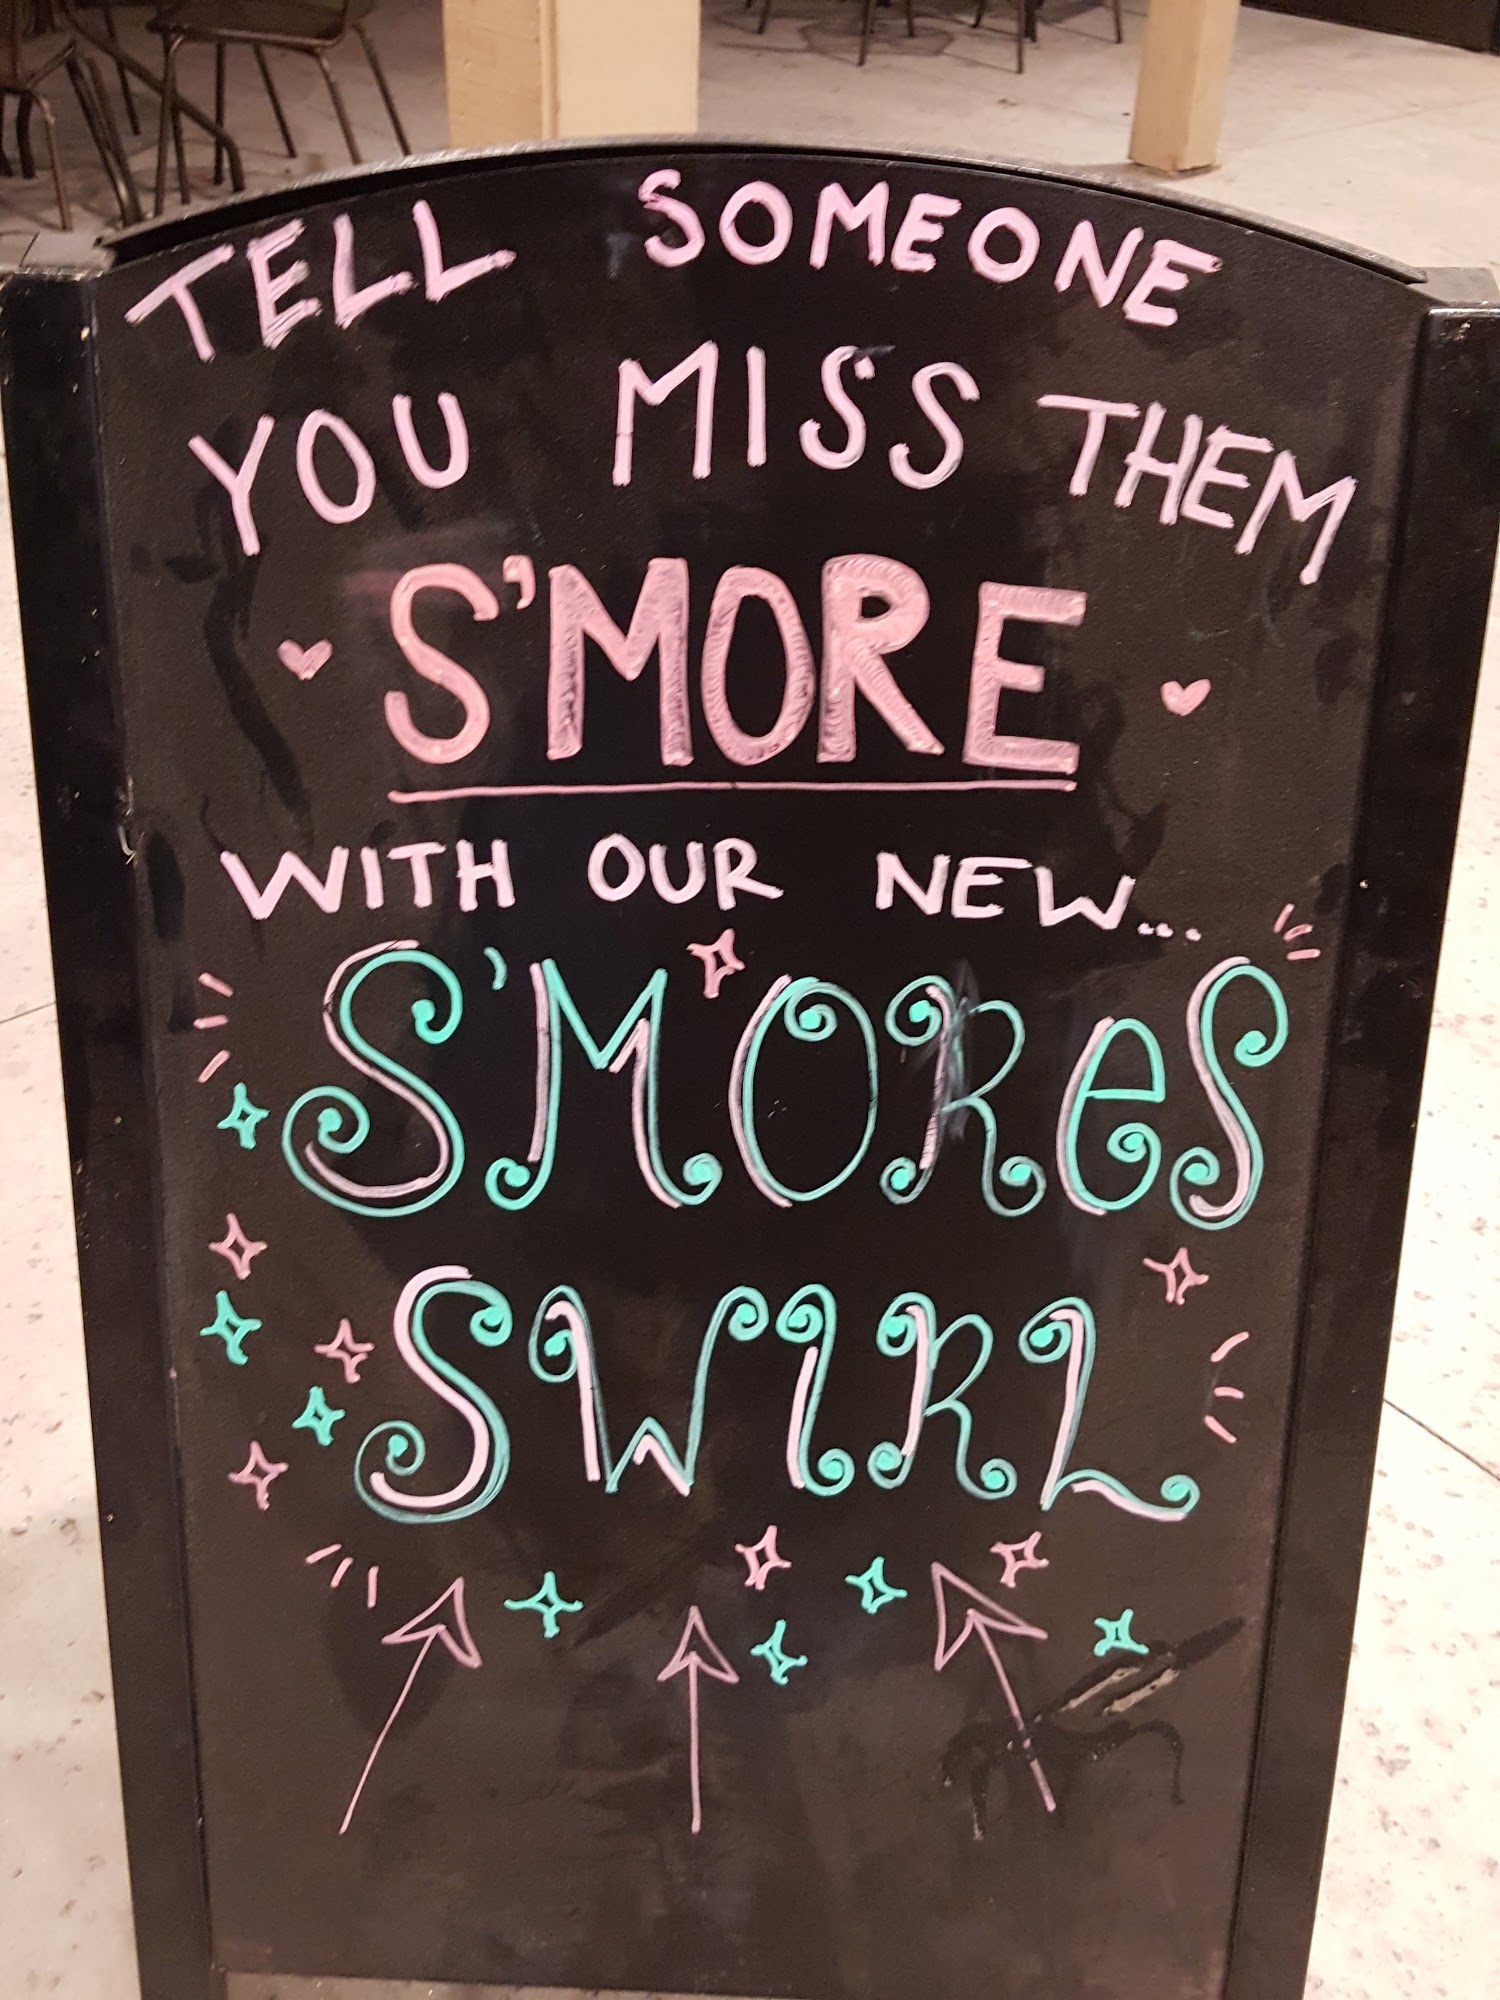 TELL SOMEONE
YOU MISS THEM
S'MORE
WITH OUR NEW...
S'MOReS
SWIRL